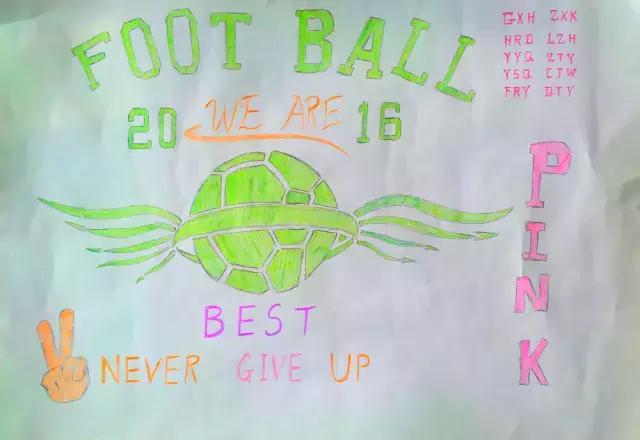 FOOT BALL
GXH ZXK
HRD LZH
YYQ ZTY
YSQ CJW
FRY QTY
20 WE ARE 16
PINK
BEST
NEVER GIVE UP